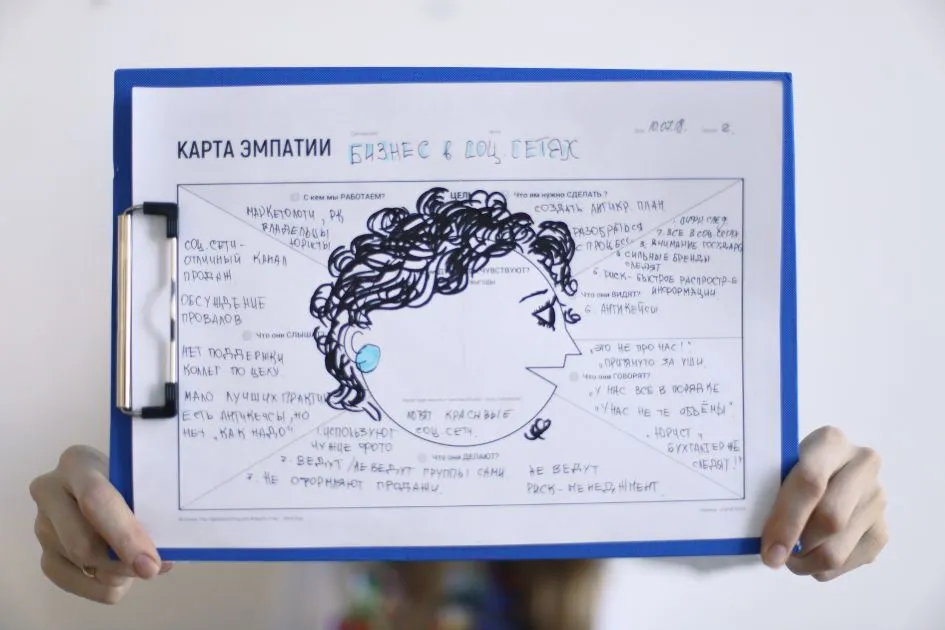 КАРТА ЭМПАТИИ
БИЗНЕС В СОЦ. СЕТЯХ
10.07.18.
2.
С кем мы РАБОТАЕМ?
ЦЕЛЬ
Что им нужно СДЕЛАТЬ?
МАРКЕТОЛОГИ, РК
ВЛАДЕЛЬЦЫ
ЮРИСТЫ
СОЗДАТЬ АНТИКР. ПЛАН
РАЗОБРАТЬСЯ
С ПРОЦЕСС
2. ВСЕ В СОЦ. СЕТЯХ
3. ВНИМАНИЕ ГОСУДАР
СИЛЬНЫЕ БРЕНДЫ
РИСК - БЫСТРОЕ РАСПРОСТР-Е
ИНФОРМАЦИИ
Что они ВИДЯТ?
6. АНТИКЕЙСЫ
СОЦ. СЕТИ -
ОТЛИЧНЫЙ КАНАЛ
ПРОДАЖ
ОБСУЖДЕНИЕ
ПРОВАЛОВ
ЧУВСТВУЮТ?
Что они СЛЫШАТ
НЕТ ПОДДЕРЖКИ
КОЛЛЕГ ПО ЦЕХУ
МАЛО ЛУЧШИХ ПРАКТИК
ЕСТЬ АНТИКЕЙСЫ, НО
НЕТ "КАК НАДО"
"ЭТО НЕ ПРО НАС!"
"ПРИТЯНУТО ЗА УШИ.
Что они ГОВОРЯТ?
"У НАС ВСЕ В ПОРЯДКЕ
"У НАС НЕ ТЕ ОБЪЁМЫ".
"ЮРИСТ,
БУХГАЛТЕР НЕ
СЛЕДЯТ!"
ХОТЯТ КРАСИВЫЕ
СОЦ. СЕТИ.
ИСПОЛЬЗУЮТ
ЧУЖИЕ ФОТО
Что они ДЕЛАЮТ?
2. ВЕДУТ / НЕ ВЕДУТ ГРУППЫ САМИ
НЕ ОФОРМЛЯЮТ ПРОДАЖИ.
НЕ ВЕДУТ
РИСК-МЕНЕДЖМЕНТ.